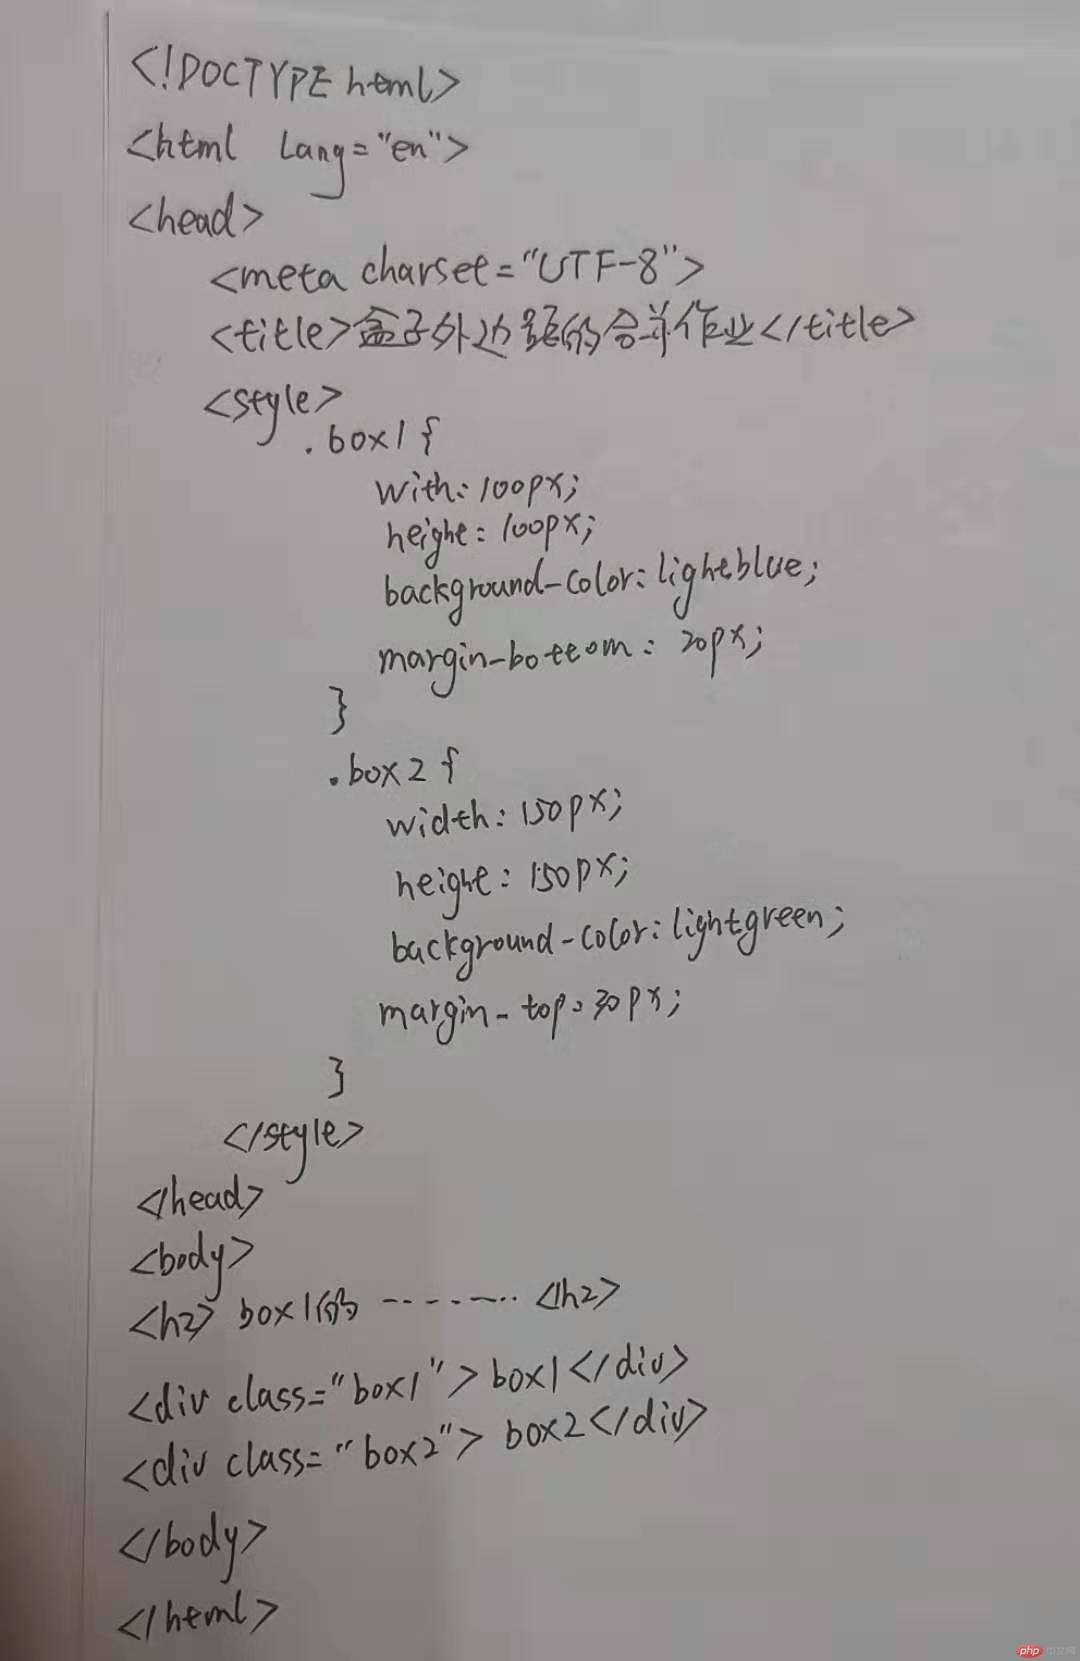 <!DOCTYPE html>
<html lang="en">
<head>
<meta charset="UTF-8">
<title>盒子外边距的合并作业</title>
<style>
.box1 {
with: 100px;
height: 100px;
background-color: lightblue;
margin-bottom: 20px;
}
.box2 {
width: 150px;
height: 150px;
background-color: lightgreen;
margin-top: 30px;
}
</style>
</head>
<body>
<h2> box1的 --------- </h2>
<div class="box1">box1</div>
<div class="box2"> box2</div>
</body>
</html>
php 中文网